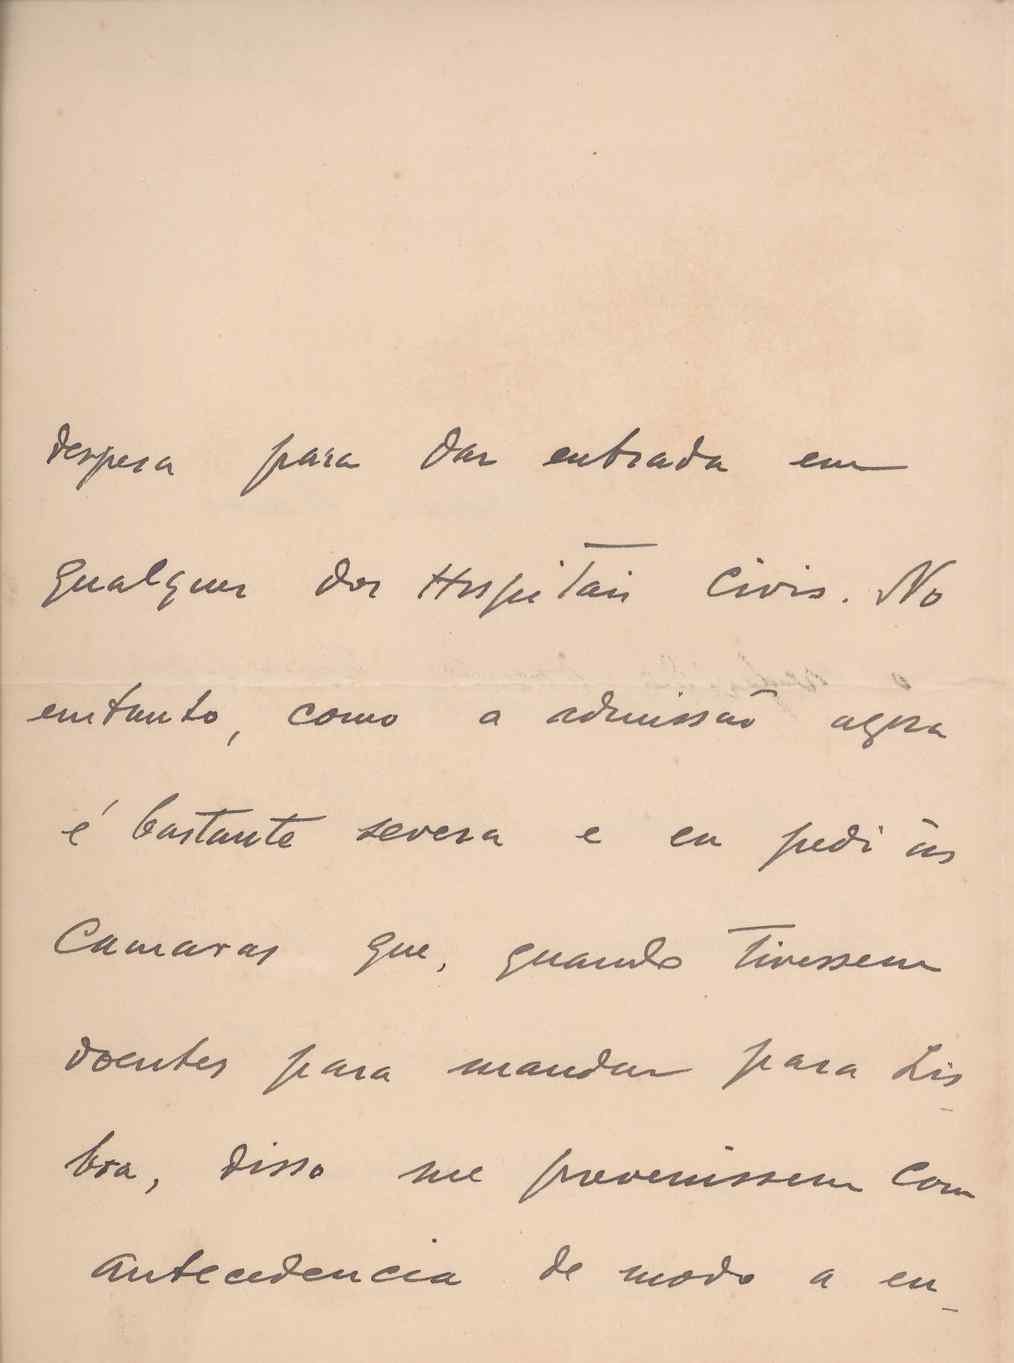 despesa para dar entrada em
qualquer dos Hospitais Civis. No
emtanto, como a admissão agora
é bastante severa e eu pedi ás
Camaras que, quando tivessem
doentes para mandar para Lis
boa, disso me prevenissem com
antecedencia de modo a en-